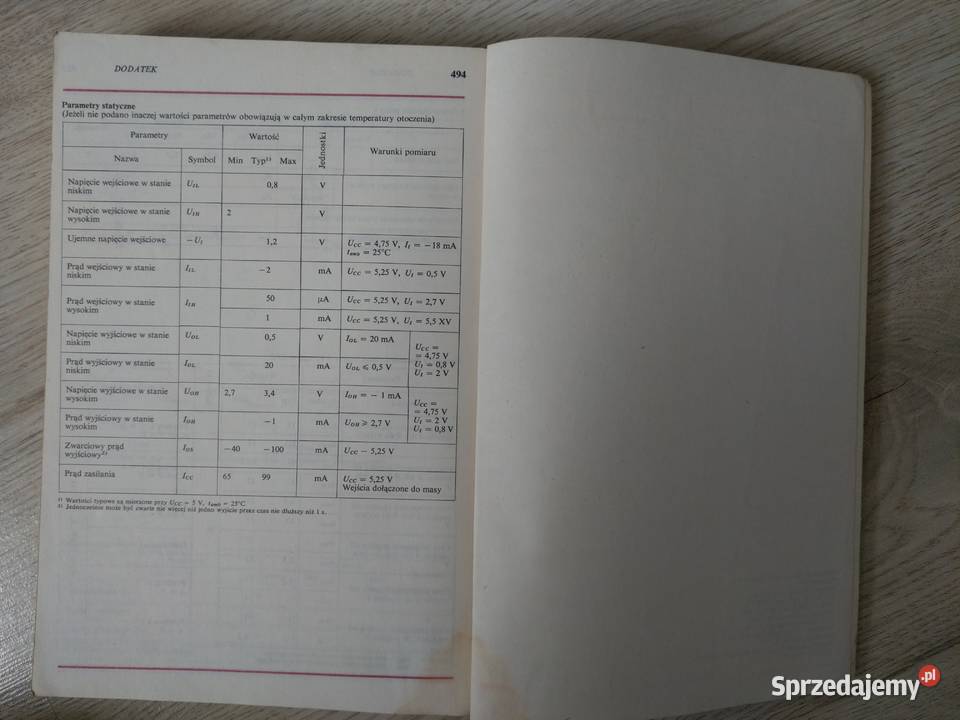 DODATEK
494
Parametry statyczne
(Jeżeli nie podano inaczej wartości parametrów obowiązują w całym zakresie temperatury otoczenia)
Parametry Wartość Jednostki Warunki pomiaru
Nazwa Symbol Min Typ¹⁾ Max
Napięcie wejściowe w stanie niskim U_IL 0,8 V
Napięcie wejściowe w stanie wysokim U_IH 2 V
Ujemne napięcie wejściowe −U_I 1,2 V U_CC = 4,75 V, I_I = −18 mA
t_amb = 25°C
Prąd wejściowy w stanie niskim I_IL −2 mA U_CC = 5,25 V, U_I = 0,5 V
Prąd wejściowy w stanie wysokim I_IH 50 μA U_CC = 5,25 V, U_I = 2,7 V
1 mA U_CC = 5,25 V, U_I = 5,5 XV
Napięcie wyjściowe w stanie niskim U_OL 0,5 V I_OL = 20 mA
Prąd wyjściowy w stanie niskim I_OL 20 mA U_OL ⩽ 0,5 V
U_CC =
= 4,75 V
U_I = 0,8 V
U_I = 2 V
Napięcie wyjściowe w stanie wysokim U_OH 2,7 3,4 V I_OH = − 1 mA
Prąd wyjściowy w stanie wysokim I_OH −1 mA U_OH ⩾ 2,7 V
U_CC =
= 4,75 V
U_I = 2 V
U_I = 0,8 V
Zwarciowy prąd wyjściowy²⁾ I_OS −40 −100 mA U_CC − 5,25 V
Prąd zasilania I_CC 65 99 mA U_CC = 5,25 V
Wejścia dołączone do masy
¹⁾ Wartości typowe są mierzone przy U_CC = 5 V, t_amb = 25°C
²⁾ Jednocześnie może być zwarte nie więcej niż jedno wyjście przez czas nie dłuższy niż 1 s.
Sprzedajemy.pl